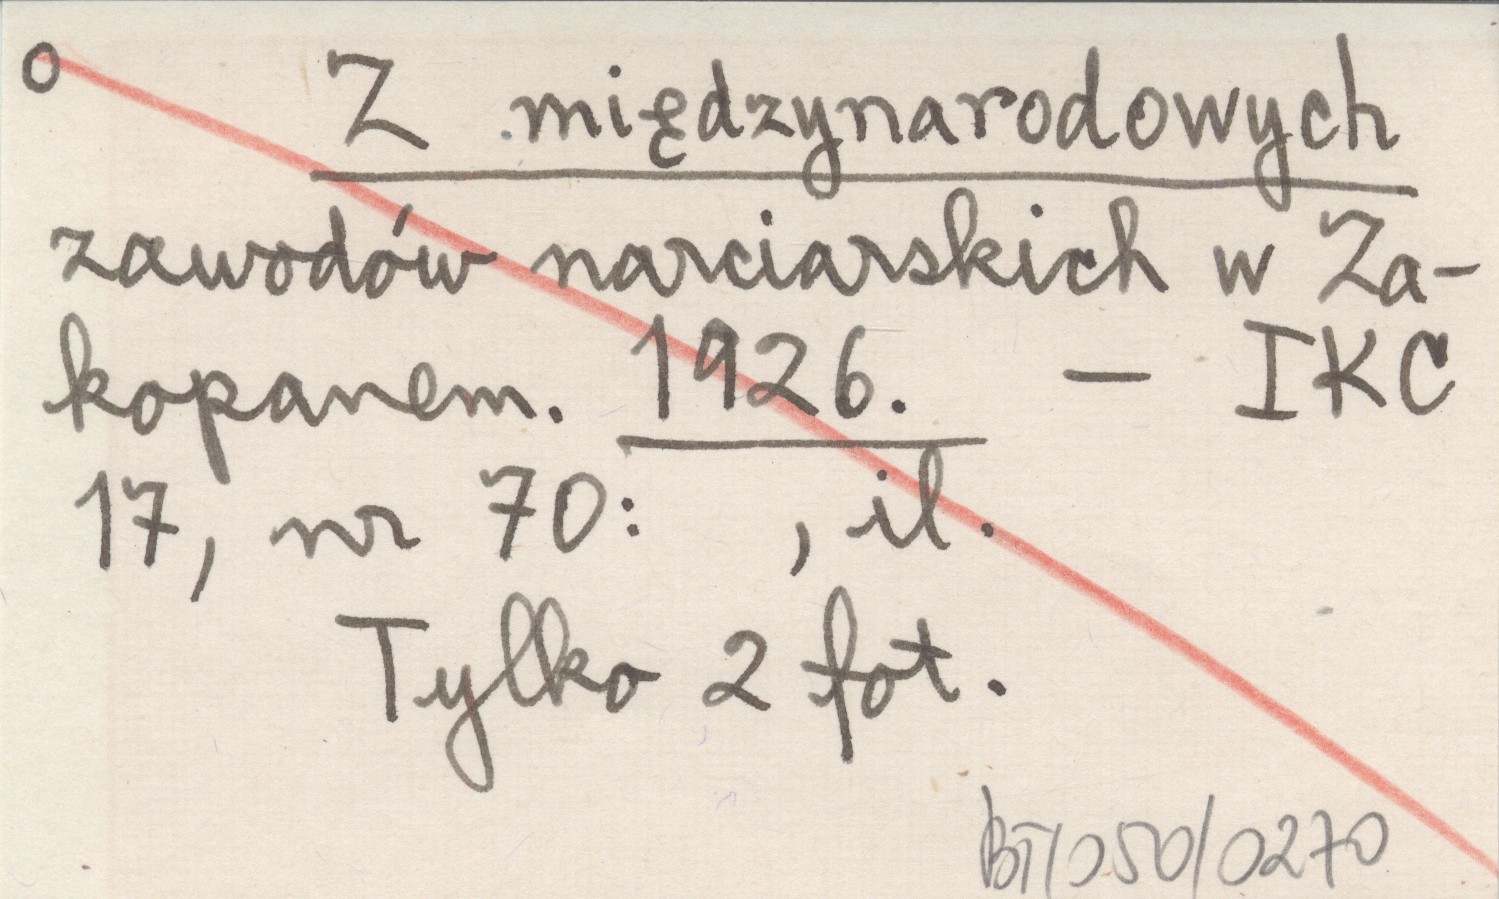 o Z międzynarodowych
zawodów narciarskich w Za-
kopanem. 1926. — IKC
17, nr 70: , il.
Tylko 2 fot.
BT/050/0270